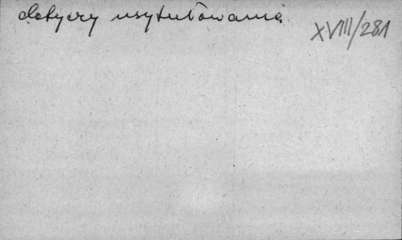 dotyczy usytuowania
XVIII/281